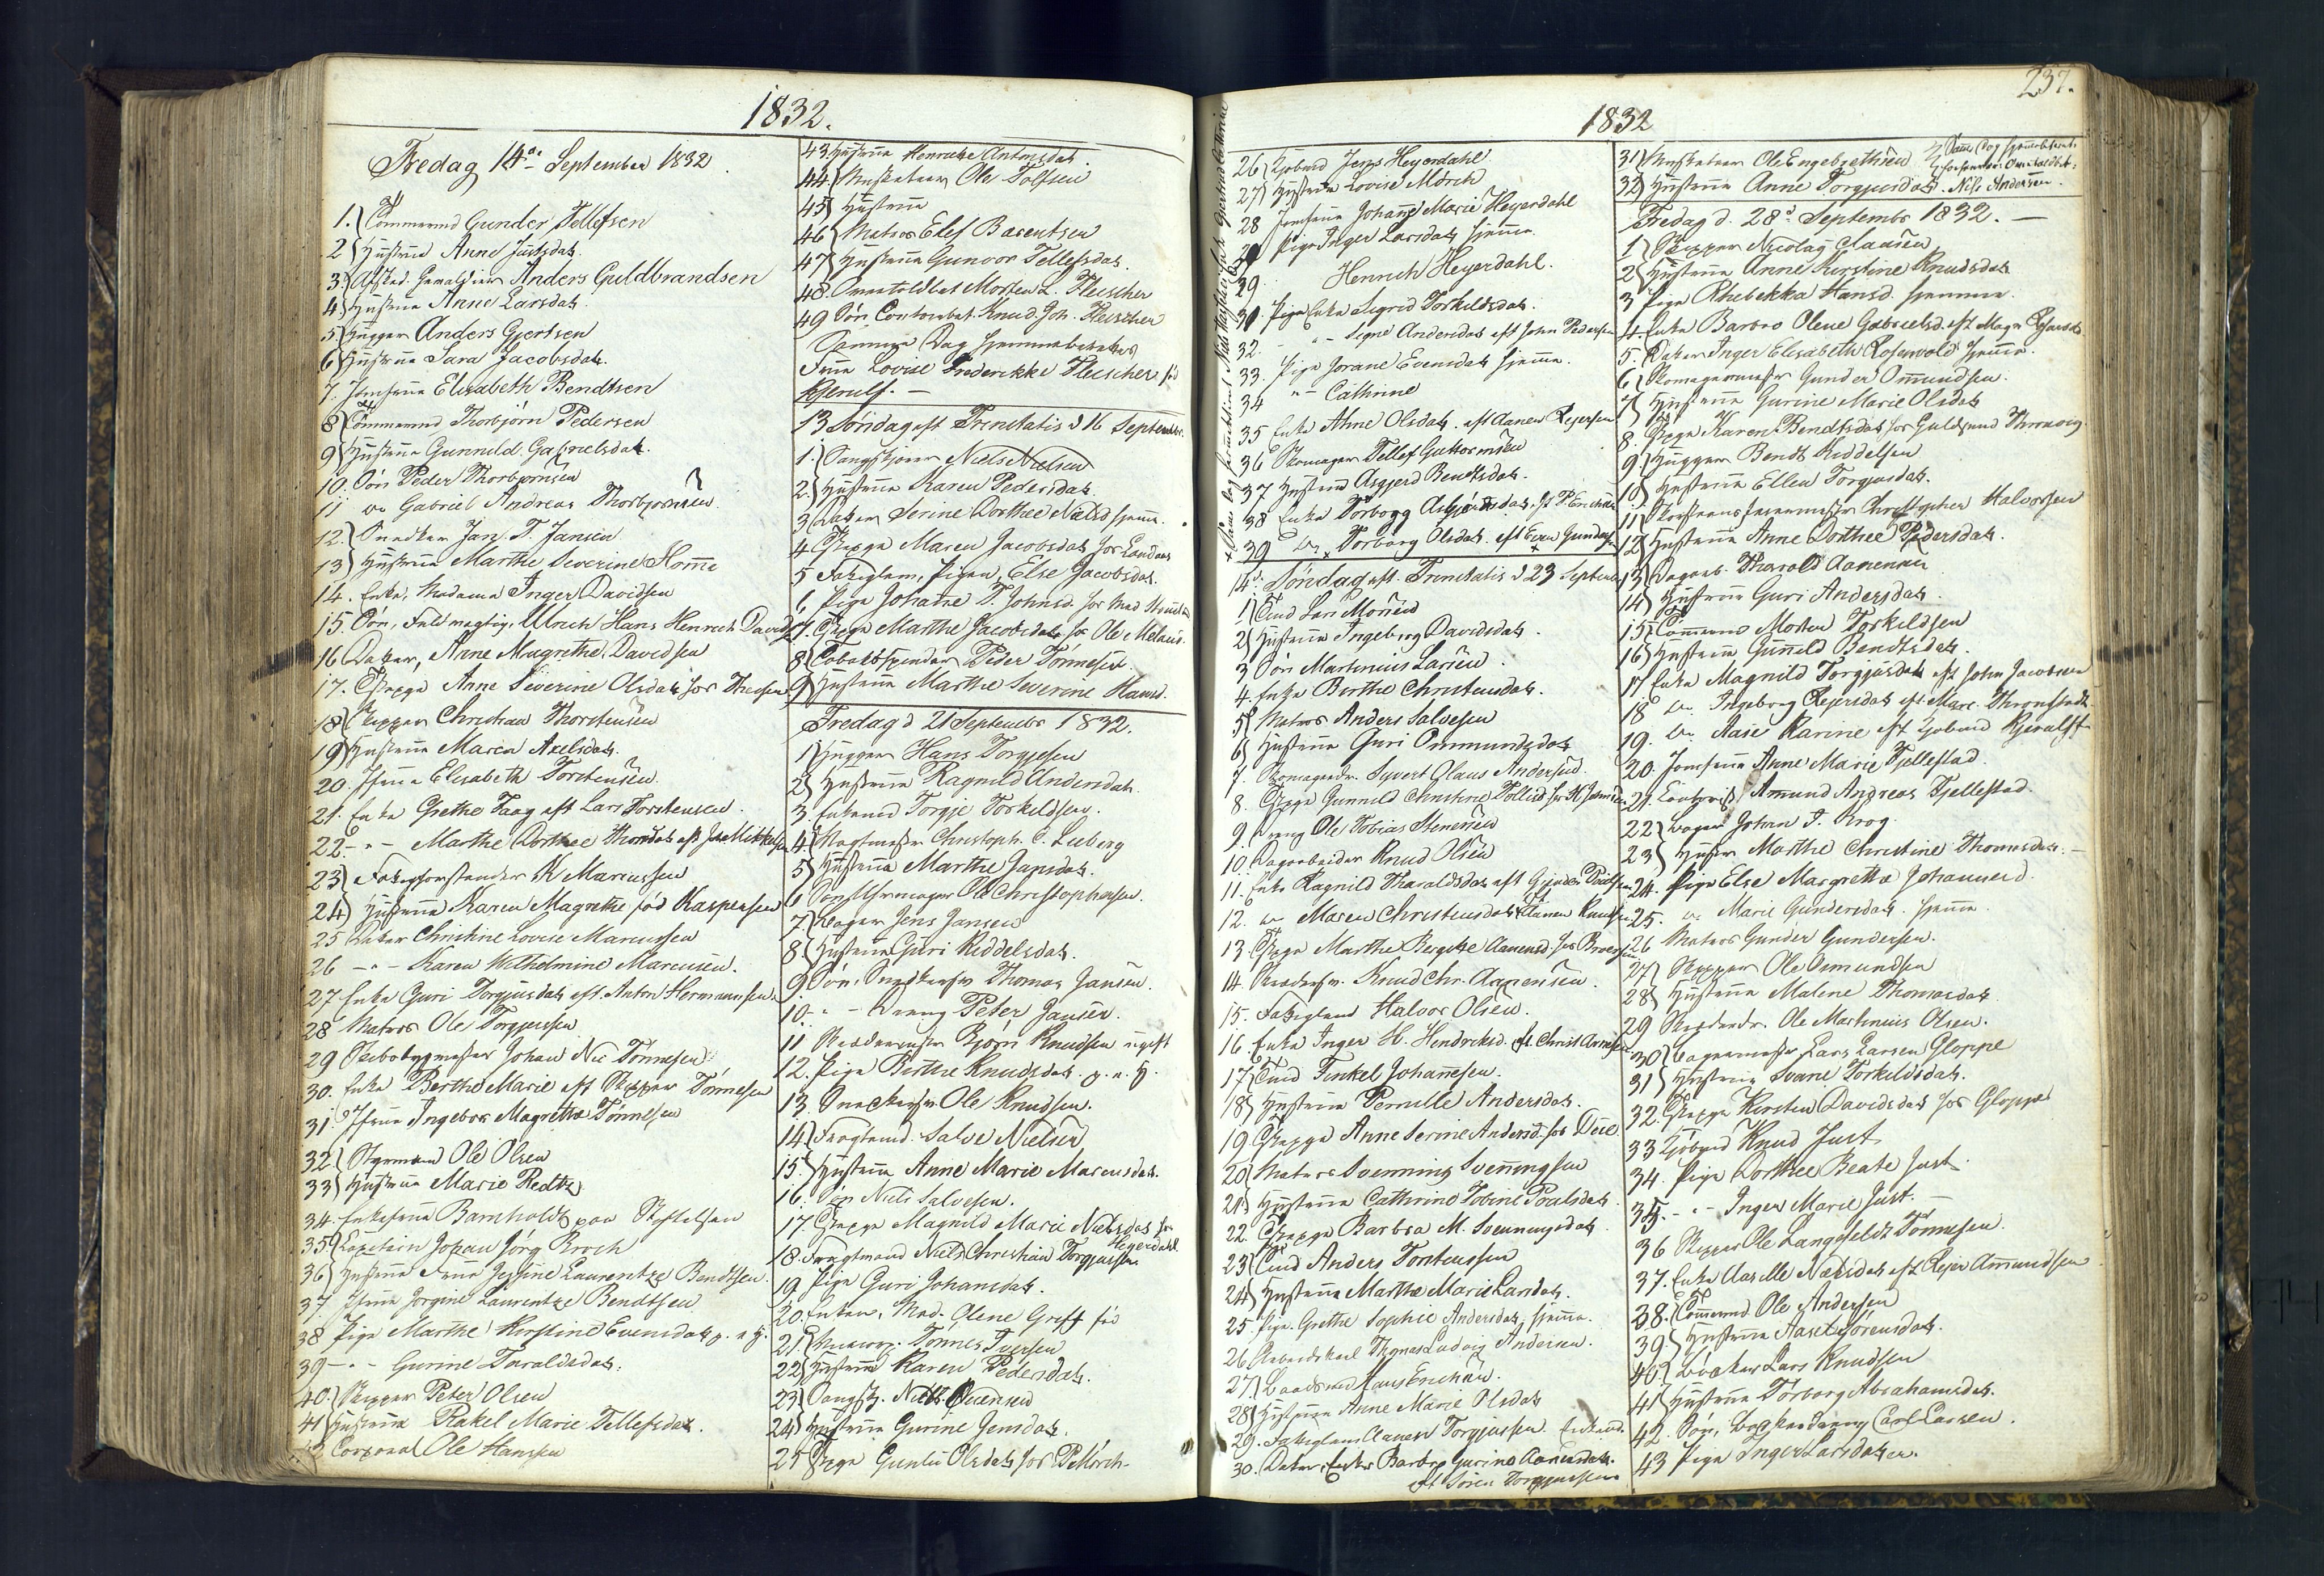 1832.
Fredag 14de September 1832.
1. Tømmermd Gunder Tellefsen
2 Hustrue Anne Justsdat.
3. Afsked. Gevaldier Anders Guldbrandsen
4 Hustrue Anne Larsdat.
5 Hugger Anders Gjertsen
6 Hustrue Sara Jacobsdat.
7. Jomfrue Elisabeth Bendtsen
8 Tømmermd Thorbjørn Pedersen
9 Hustrue Gunnild Gabrielsdat.
10. Søn Peder Thorbjørnsen
11 do Gabriel Andreas Thorbjørnsen
12. Snedker Jans. T. Jansen
13 Hustrue Marthe Severine Homme
14. Enke, Madame Inger Davidsen
15. Søn, Fuldmægtig, Ulrich Hans Henrich Davidsen
16 Datter, Anne Magrethe Davidsen
17. Pige Anne Severine Olsdat. hos
18 Skipper Christian Thorstensen
19 Hustrue Maren Axelsdat.
20. Jfrue Elisabeth Torstensen
21. Enke Grethe Faag eft Lars Torstensen.
22. - " - Marthe Dorthee Thomdat. eft Mikkelsen
23 Fattigforstander N Marcussen
24 Hustrue Karen Magrethe fød Kaspersen
25 Datter Christine Lovise Marcussen
26 - " - Karen Wilhelmine Marcussen.
27 Enke Guri Torgjusdat. eft. Anton Hermannsen.
28 Matros Ole Torgjersen
29 Skibsbygmester Johan Nic Tønnesen
30. Enke Berthe Marie eft Skipper Tønnesen
31. Jfrue Ingebor Magrethe Tønnesen
32 Styrmand Ole Olsen
33 Hustrue Marie Redtz
34. Enkefrue Barnholdt paa
35. Capitain Johan Jørg Kroch
36 Hustrue Frue Jessine Laurentze Bendtsen.
37 Jfrue Jorgine Laurentze Bendtsen
38 Pige Marthe Kirstine Evensdat. g. u. H.
39 - " - Gurine Taraldsdat.
40. Skipper Peter Olsen
41 Hustrue Rakel Marie Tellefsdat.
42 Corporal Ole Hanssen
43 Hustrue Henricke Antonsdat.
44. Musketeer Ole Tolfsen
45 Hustrue
46 Matros Elef Barentsen
47 Hustrue Gunvor Tellefsdat.
48. Overtoldbet Morten L. Fleischer
49 Søn Contoirbet. Knud Joh. Fleischer
Samme Dag hjemmeberettet
Frue Lovise Frederikke Fleischer fød
Kjerulf. —
13 Søndag eft Trinitatis d 16 September.
1. Niels Nielsen
2. Hustrue Karen Pedersdat.
3 Datter Serine Dorthee Nielsd hjemme.
4 Pige Maren Jacobsdat. hos
5 Fattiglem, Pigen, Else Jacobsdat.
6 Pige Johanne T. Johnsd. hos Mad
7. Pige Marthe Jacobsdat. hos Ole
8 Tobakspinder Peder Tønnesen.
9 Hustrue Marthe Severine Hansd.
Fredag d 21 Septembr 1832.
1 Hugger Hans Torgjesen
2 Hustrue Ragnild Andersdat.
3. Enkemd Torgje Torkildsen.
4 Vagtmester Christoph. C. Lieberg
5 Hustrue Marthe Jansdat.
6 Søn Uhrmager Ole Christophersen.
7 Bager Jens Jansen
8 Hustrue Guri Kiddelsdat.
9 Søn, Snedkersv Thomas Jansen.
10. " - Dreng Peter Jansen.
11 Skræddermester Bjørn Knudsen ugift
12. Pige Birthe Knudsdat. g. u. H.
13. Snedkersv Ole Knudsen.
14. Fragtemd. Salve Nielsen
15. Hustrue Anne Marie Marcusdat.
16. Søn Niels Salvesen.
17. Pige Magnild Marie Nielsdat. hos Heyerdahl
18. Fragtmand Niels Christian Torgjusen
19. Pige Guri Johansdat.
20. Enken, Mad. Olene Greff fød
21 Tønnes Iversen
22 Hustrue Karen Pedersdat.
23 Niels Svensen
24 Hustrue Gurine Jensdat.
25 Pige Olsdat. hos P. Mørch.
237.
1832
26 Kjøbmd Jens Heyerdahl
27 Hustrue Lovise Mørch
28 Jomfrue Johanne Marie Heyerdahl
Pige Inger Larsdat. hjemme.
29. Henrich Heyerdahl.
30. Pige Enke Segrid Torkildsdat.
32. - " - Signe Andersdat. eft John Pedersen
33. Pige Jorane Evensdat. hjemme.
34 " - Cathrine
35 Enke Anne Olsdat. eft Aanen Reyersen
36 Skomager Tellef Guttormsen
37 Hustrue Asgjerd Bendtsdat.
38 Enke Torborg Asbjørnsdat. eft P. Erichsen
39 do Torborg Olsdat. eft Gundersen
14de Søndag eft. Trinitatis d 23 September
1 Lars Monsen
2 Hustrue Ingeborg Davidsdat.
3 Søn Martinius Larsen.
4. Enke Birthe Christensdat.
5 Matros Anders Salvesen
6 Hustrue Guri Ommundsdat.
7. Skomagerdr. Syvert Claus Andersen.
8. Pige Gunnild Christine Tollisd. hos H. Jansen
9. Dreng Ole Tobias Stenersen
10. Dagarbeider Knud Olsen
11. Enke Ragnild Tharaldsdat. eft
12. do Maren Christensdat. Aanen Knudsen
13. Pige Marthe Bergitte Aanensd. hos
14 Skrædersv. Knud Chr. Aanensen.
15. Fattiglem Halvor Olsen.
16. Enke Inger H. Hendriksd. eft. Christ Arnesen
17 Tinkel Johannesen.
18 Hustrue Pernille Andersdat.
19 Pige Anne Serine Andersd. hos Due
20 Matros Svenning Svenningsen
21 Hustrue Cathrine Tobine Poulsdat.
22 Pige Barbra M. Svenningsdat.
23 Anders Torstensen
24 Hustrue Marthe Marie Larsdat.
25 Pige Grethe Sophie Andersdat. hjemme.
26 Arbeidskarl Thomas Ludvig Andersen.
27. Hans Erichsen.
28 Hustrue Anne Marie Olsdat.
29. Fattiglem Aanen Torgjussen. Enkemd.
30. Datter, Enke Barbro Gurine Aanensdat.
eft Søren Torgjussen
31 Musketeer Ole Engebrethsen
32 Hustrue Anne Torgjusdat.
Samme Dag hjemmeberettet
Nils Andersen.
Fredag d. 28d Septembr 1832. —
1 Skipper Nicolay Clausen
2 Hustrue Anne Kirstine Knudsdat.
3 Pige Rhebekka Hansd. hjemme.
4. Enke Barbro Olene Gabrielsd. eft Mogn
5. Datter Inger Elisabeth Rosenvold hjemme.
6 Skomagermester Gunder Ommundsen.
7 Hustrue Gurine Marie Olsdat.
8. Pige Karen Bendtsdat. hos Guldsmed
9. Hugger Bendt Kiddelsen
10 Hustrue Ellen Torgjusdat.
11 Christopher Halvorsen
12 Hustrue Anne Dorthee Pedersdat.
13 Dagarb. Tharald Aanensen
14 Hustrue Guri Andersdat.
15 Tømmermd Morten Torkildsen
16 Hustrue Gunnild Bendtsdat.
17 Enke Magnild Torgjusdat. eft John Jacobsen
18 do Ingeborg Reiersdat. eft. Marc. Thronstad
19. do Aase Karine eft Kjøbmd Kjerulff
20. Jomfrue Anne Marie Fjellestad.
21. Amund Andreas Fjellestad.
22 Bager Johan J. Krog
23 Hustr Marthe Christine Thomasdat. —
24. Pige Else Margrethe Johannesd.
25. do Marie Gundersdat. hjemme
26 Matros Gunder Gundersen.
27 Skipper Ole Osmundsen
28 Hustrue Malene Thomasdat.
29 Skrædderdr. Ole Martinius Olsen.
30 Bagermester Lars Larsen Gloppe
31 Hustrue Torkildsdat.
32. Pige Kirsten Davidsdat. hos Gloppe
33 Kjøbmd Knud Just
34. Pige Dorthee Beate Just.
35. - " - Inger Marie Just. —
36 Skipper Ole Langefeldt Tønnesen.
37. Enke Nielsdat. eft Reyer Amundsen
38. Tømmermd Ole Andersen
39 Hustrue Aaset Sørensdat.
40. Lars Knudsen
41 Hustrue Torborg Abrahamsdat.
42. Søn, Carl Larsen.
43 Pige Inger Larsdatter.